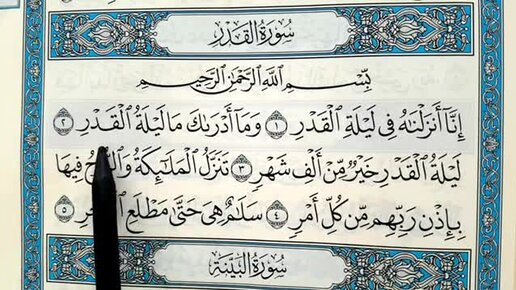 سُورَةُ ٱلْقَدْرِ
بِسْمِ ٱللَّهِ ٱلرَّحْمَٰنِ ٱلرَّحِيمِ
إِنَّآ أَنزَلْنَٰهُ فِى لَيْلَةِ ٱلْقَدْرِ ١ وَمَآ أَدْرَىٰكَ مَا لَيْلَةُ ٱلْقَدْرِ ٢
لَيْلَةُ ٱلْقَدْرِ خَيْرٌ مِّنْ أَلْفِ شَهْرٍ ٣ تَنَزَّلُ ٱلْمَلَٰٓئِكَةُ فِيهَا
بِإِذْنِ رَبِّهِم مِّن كُلِّ أَمْرٍ ٤ سَلَٰمٌ هِىَ حَتَّىٰ مَطْلَعِ ٥
سُورَةُ ٱلْبَيِّنَةِ